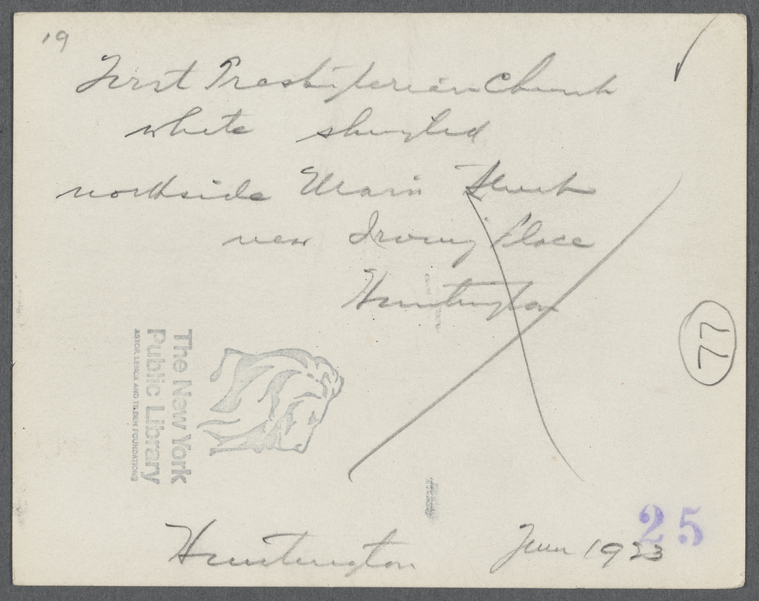 19
First Presbyterian Church
white shingled
northside Main Street
near Irving Place
Huntington
77
The New York
Public Library
ASTOR, LENOX AND TILDEN FOUNDATIONS
25
Huntington June 1923